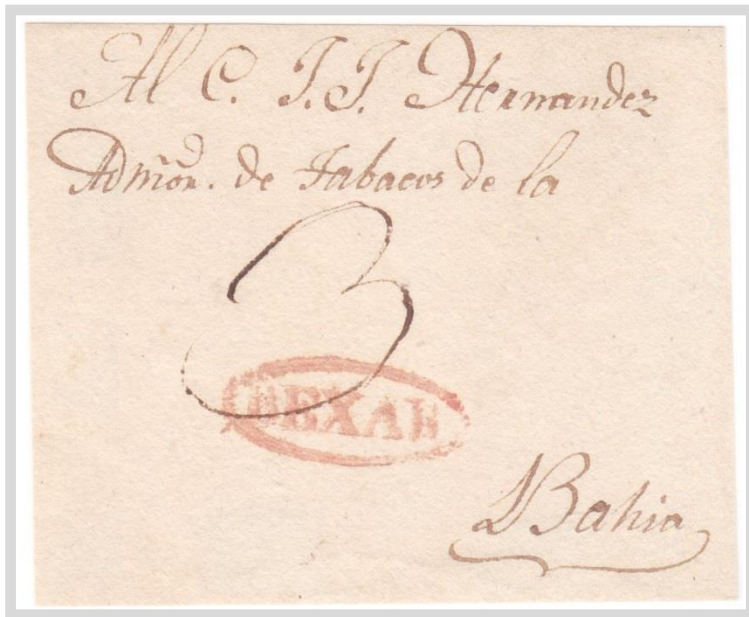 Al C. J. J. Hernandez
Admōn. de Tabacos de la
3
BEXAR
Bahia